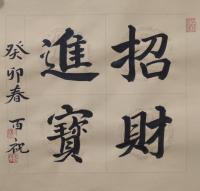 招財
進寶
癸卯春
百祝